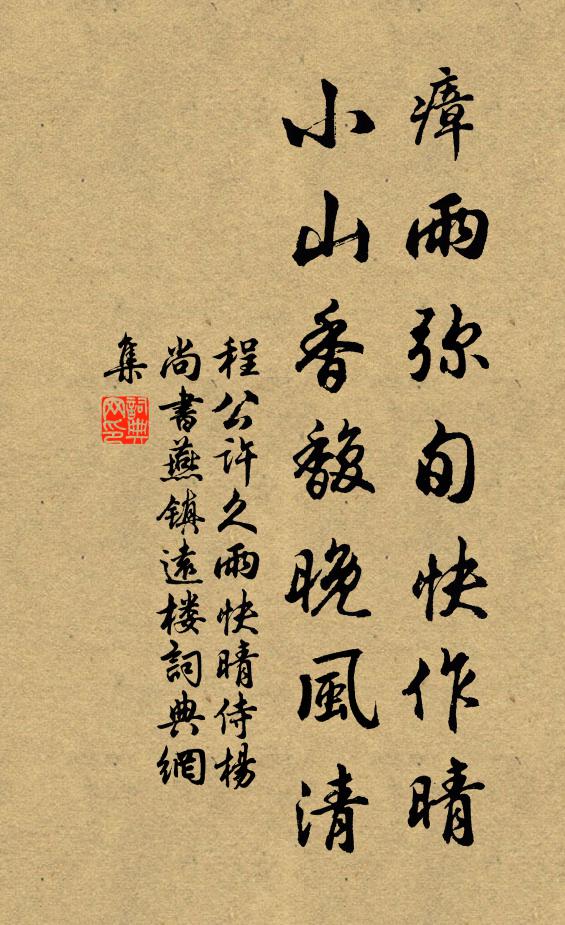 瘴雨弥旬快作晴
小山香馥晚風清
程公許久雨快晴侍楊
尚書燕鎮遠楼詞典網
集
詞典网印